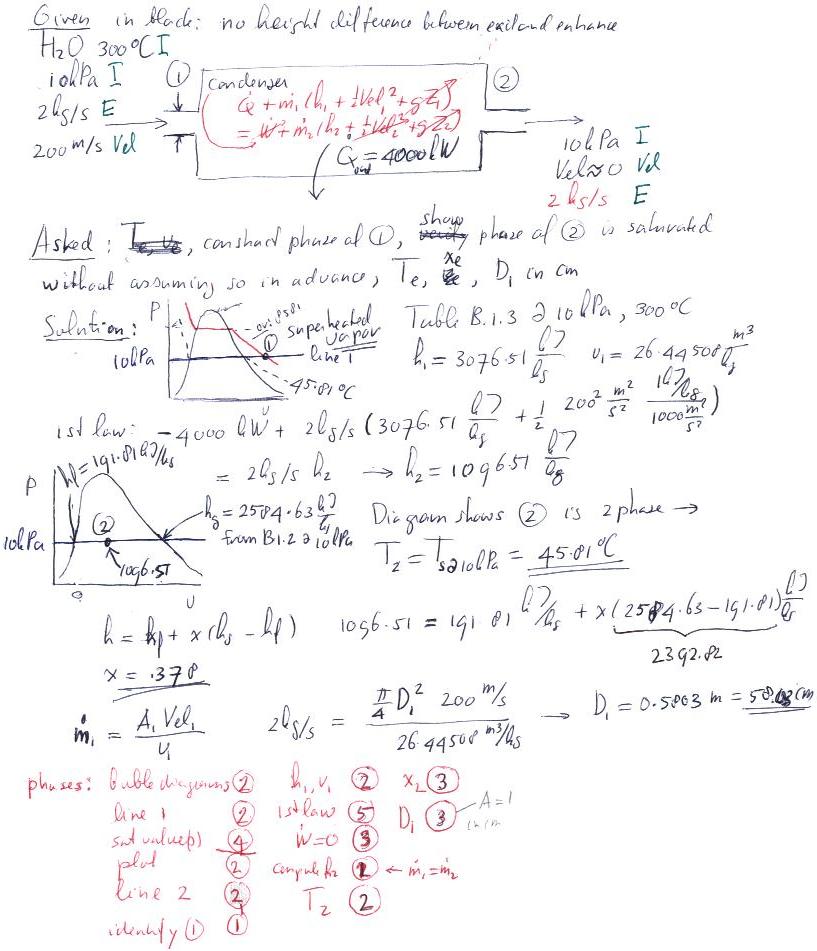 Given in black: no height difference between exit and enhance
H2O 300°C I
10kPa I
2kg/s E
200 m/s Vel
① Condenser ②
Q̇ + ṁ1 (h1 + ½Vel1² + gZ1)
= Ẇ + ṁ2 (h2 + ½Vel2² + gZ2)
Q̇out = 4000 kW
10kPa I
Vel≈0 Vel
2 kg/s E
Asked: Te, ve, construct phase at ①, show verify phase at ② is saturated
without assuming so in advance, Te, xe, D1 in cm
Solution: P
10kPa
① superheated vapor
line 1
45.81°C
v
Table B.1.3 @ 10 kPa, 300°C
h1 = 3076.51 kJ/kg v1 = 26.44508 m³/kg
1st law: -4000 kW + 2kg/s (3076.51 kJ/kg + 1/2 200² m²/s² 1kJ/kg / 1000 m²/s²)
= 2kg/s h2 → h2 = 1096.51 kJ/kg
P
hf = 191.81 kJ/kg
②
10kPa
1096.51
v
hg = 2584.63 kJ/kg
from B1.2 @ 10kPa
Diagram shows ② is 2 phase →
T2 = Ts@10kPa = 45.81°C
h = hf + x (hg - hf) 1096.51 = 191.81 kJ/kg + x (2584.63 - 191.81) kJ/kg
2392.82
x = .378
ṁ1 = A1 Vel1 / v1 2kg/s = π/4 D1² 200 m/s / 26.44508 m³/kg → D1 = 0.5803 m = 58.03 cm
phases: buble diagrams ② h1, v1 ② x2 ③
line 1 ② 1st law ⑤ D1 ③ A=1 in cm
sat value(s) ④ Ẇ=0 ③
plot ② compute h2 ← ṁ1=ṁ2
line 2 ② T2 ②
identify ① ①